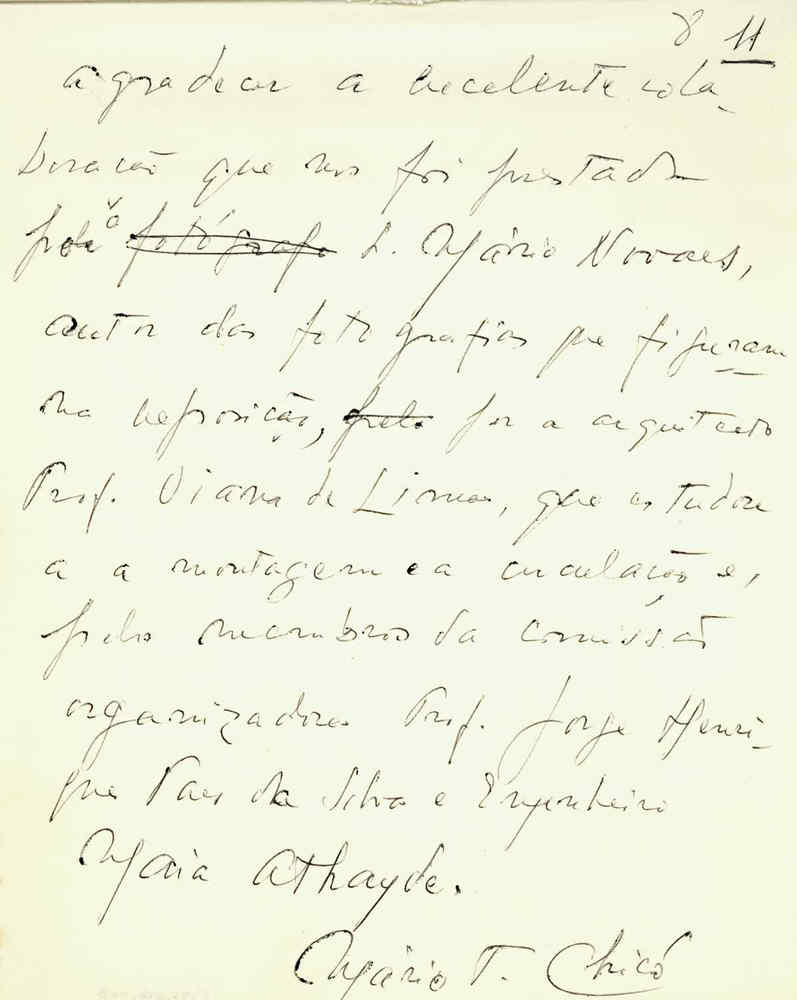 8 11
agradecer a excelente cola-
boração que nos foi prestada
pelo fotógrafo S. Mário Novaes,
autor das fotografias que figuram
na exposição, pelo por o arquitecto
Prof. Viana de Lima, que estudou
a a montagem e a circulação e,
pelos membros da comissão
organizadora Prof. Jorge Henri-
que Paes da Silva e Engenheiro
Maia Athayde.
Mário T. Chicó